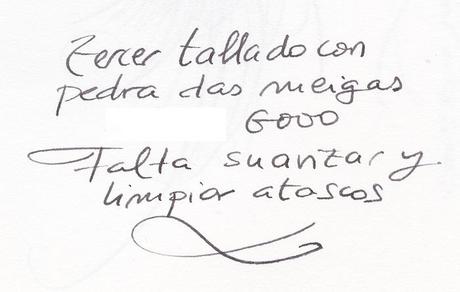 Tercer tallado con
pedra das meigas
GOOO
Falta suavizar y
limpiar atascos